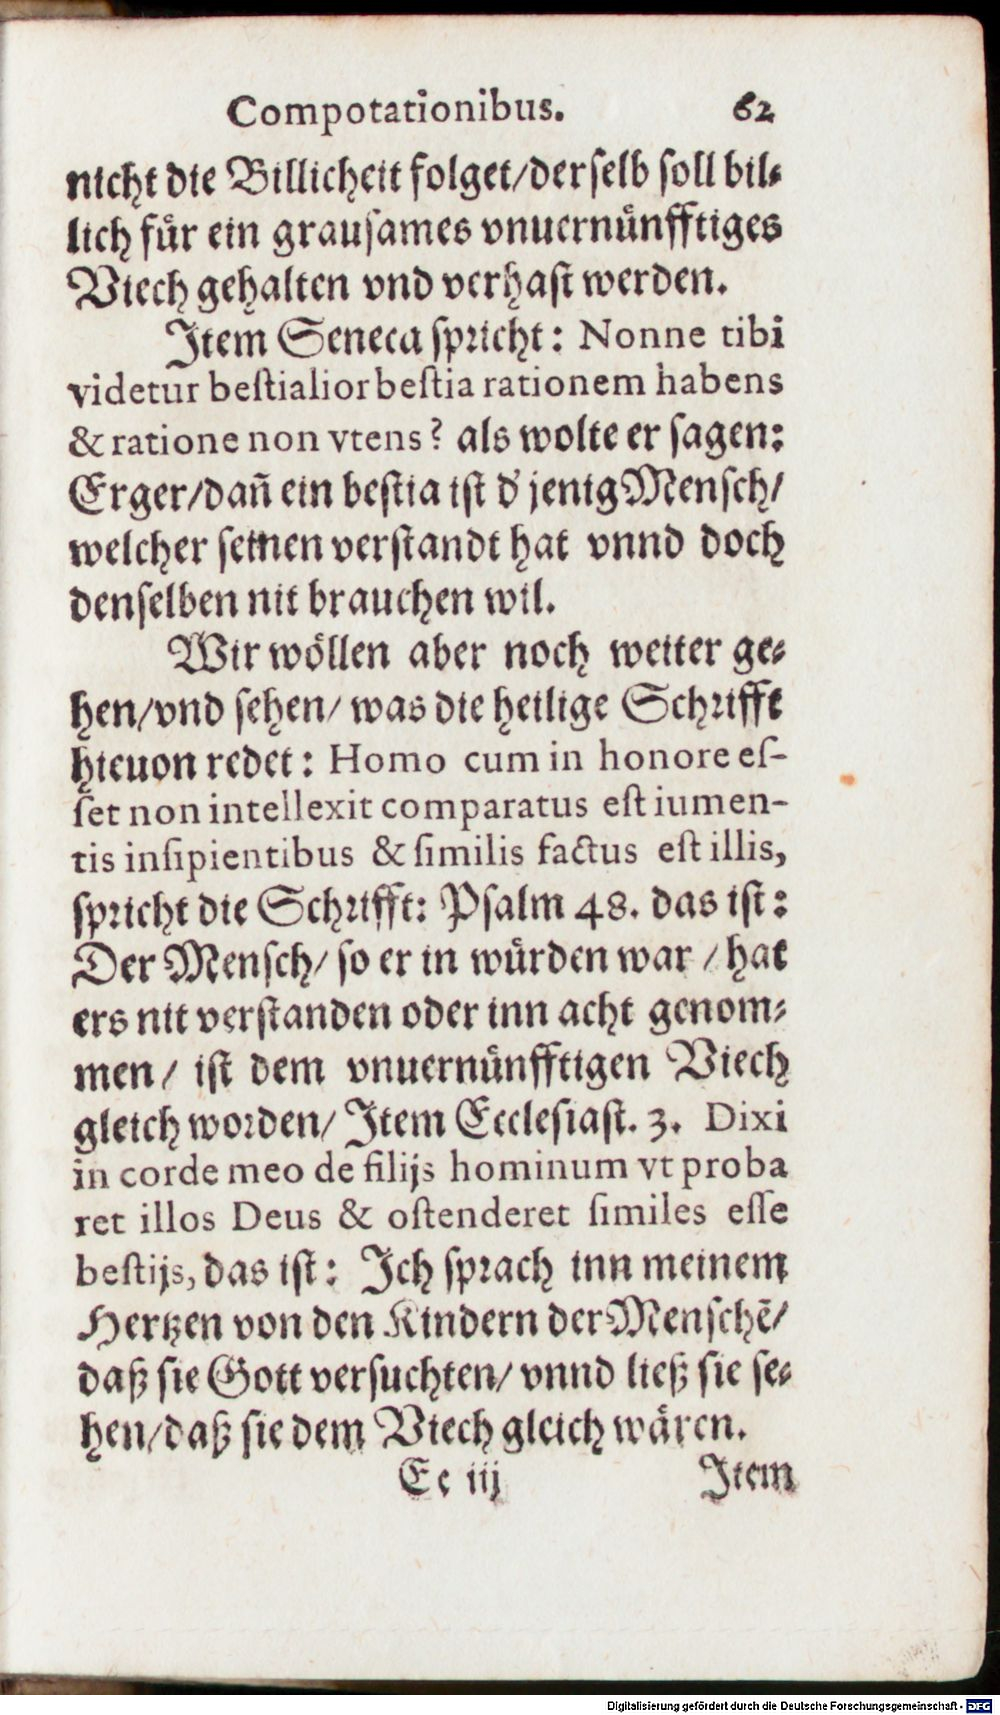 Compotationibus. 62
nicht die Billicheit folget/derselb soll bil-
lich für ein grausames vnuernünfftiges
Viech gehalten vnd verhast werden.
Item Seneca spricht: Nonne tibi
videtur bestialior bestia rationem habens
& ratione non vtens? als wolte er sagen:
Erger/dañ ein bestia ist d' jenig Mensch/
welcher seinen verstandt hat vnnd doch
denselben nit brauchen wil.
Wir wöllen aber noch weiter ge-
hen/vnd sehen/ was die heilige Schrifft
hieuon redet: Homo cum in honore es-
set non intellexit comparatus est iumen-
tis insipientibus & similis factus est illis,
spricht die Schrifft: Psalm 48. das ist:
Der Mensch/ so er in würden war / hat
ers nit verstanden oder inn acht genom-
men/ ist dem vnuernünfftigen Viech
gleich worden/ Item Ecclesiast. 3. Dixi
in corde meo de filijs hominum vt proba
ret illos Deus & ostenderet similes esse
bestijs, das ist: Ich sprach inn meinem
Hertzen von den Kindern der Menschẽ/
daß sie Gott versuchten/ vnnd ließ sie se-
hen/daß sie dem Viech gleich wären.
Ee iij Item
Digitalisierung gefördert durch die Deutsche Forschungsgemeinschaft - DFG